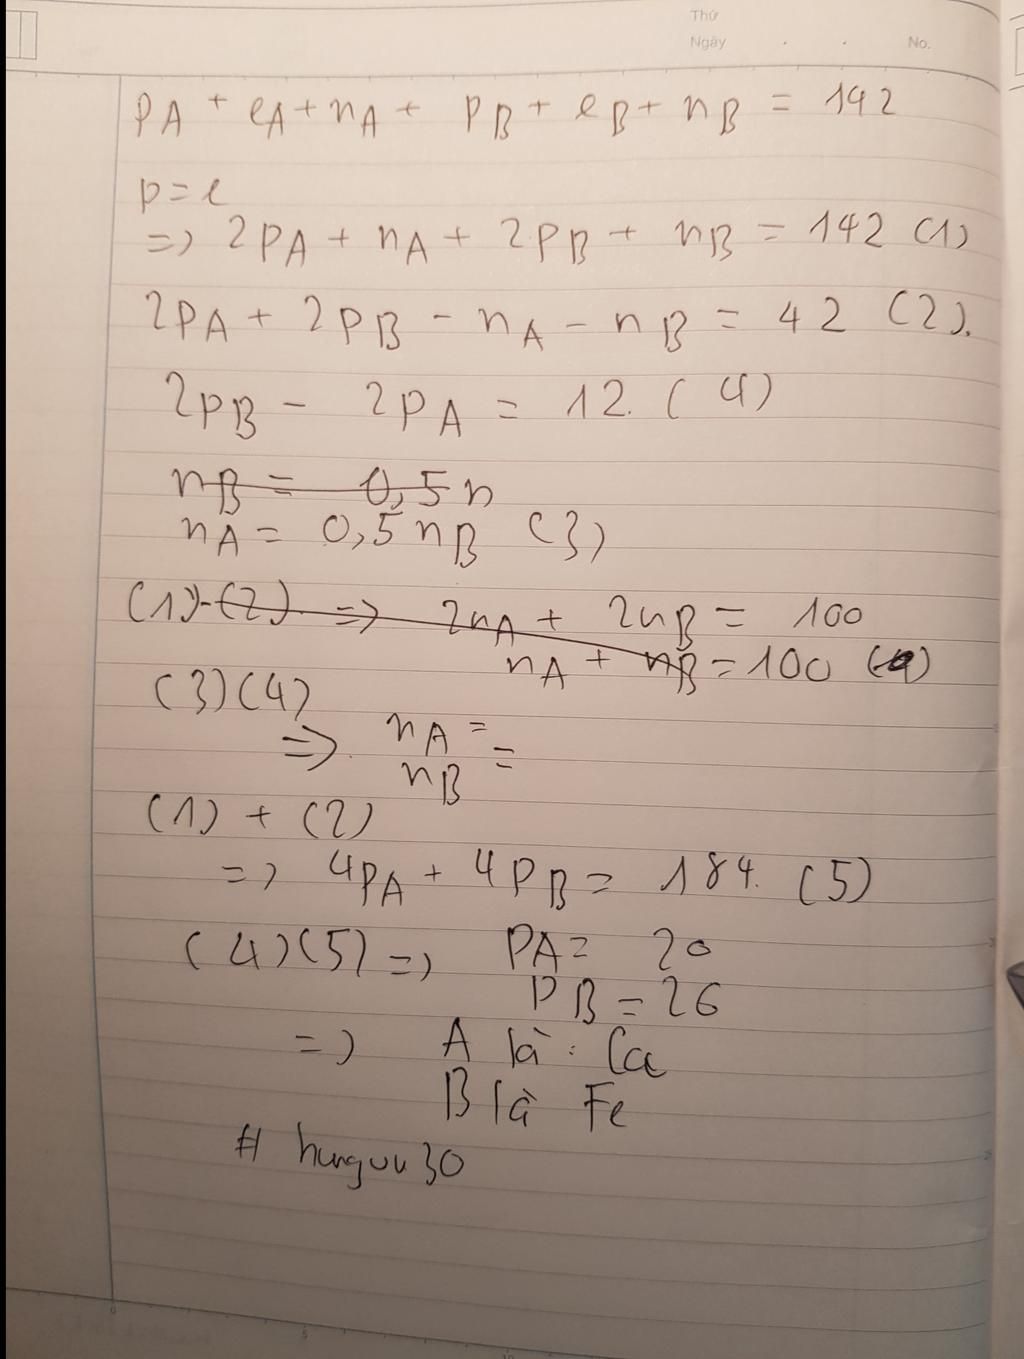 Thứ
Ngày . . No.
pA + eA + nA + pB + eB + nB = 142
p = e
=> 2pA + nA + 2pB + nB = 142 (1)
2pA + 2pB - nA - nB = 42 (2).
2pB - 2pA = 12. (4)
nB = 0,5n
nA = 0,5nB (3)
(1)-(2) => 2nA + 2nB = 100
nA + nB = 100
(3)(4)
=> nA =
nB =
(1) + (2)
=> 4pA + 4pB = 184. (5)
(4)(5) => PA = 20
PB = 26
=> A là : Ca
B là Fe
# hunguu30